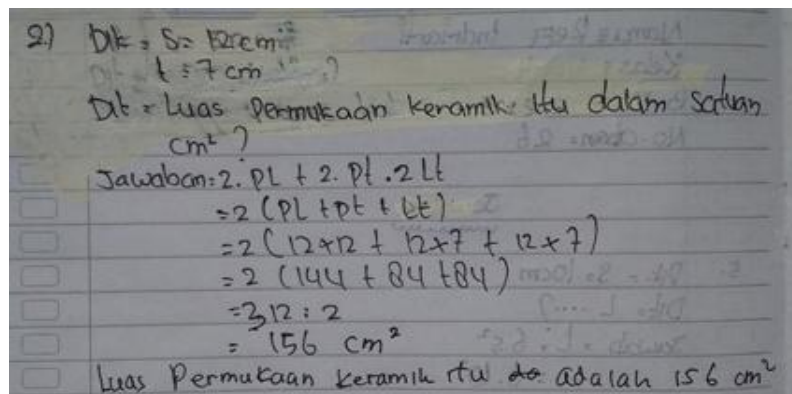 2) Dik = S = 12 cm
t = 7 cm
Dit = Luas Permukaan keramik itu dalam satuan
cm² ?
Jawaban = 2. PL + 2. Pt . 2 Lt
= 2 (PL + Pt + Lt)
= 2 (12×12 + 12×7 + 12×7)
= 2 (144 + 84 + 84)
= 312 : 2
= 156 cm²
Luas Permukaan keramik itu adalah 156 cm²